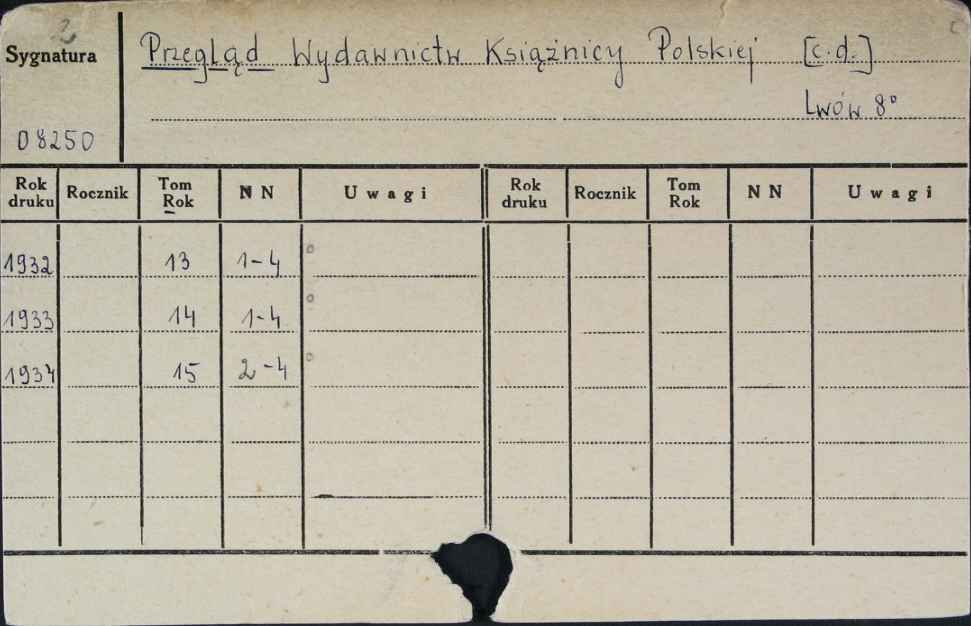 2
Sygnatura
Przegląd Wydawnictw Książnicy Polskiej [c.d.]
Lwów 8°
08250
Rok druku Rocznik Tom Rok NN Uwagi Rok druku Rocznik Tom Rok NN Uwagi
1932 13 1-4
1933 14 1-4
1934 15 2-4